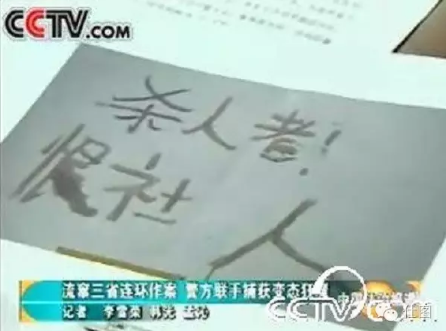 CCTV.com
杀人者!
恨社 人
流窜三省连环作案 警方联手捕获变态狂
记者 李雪荣 韩
CCTV.com